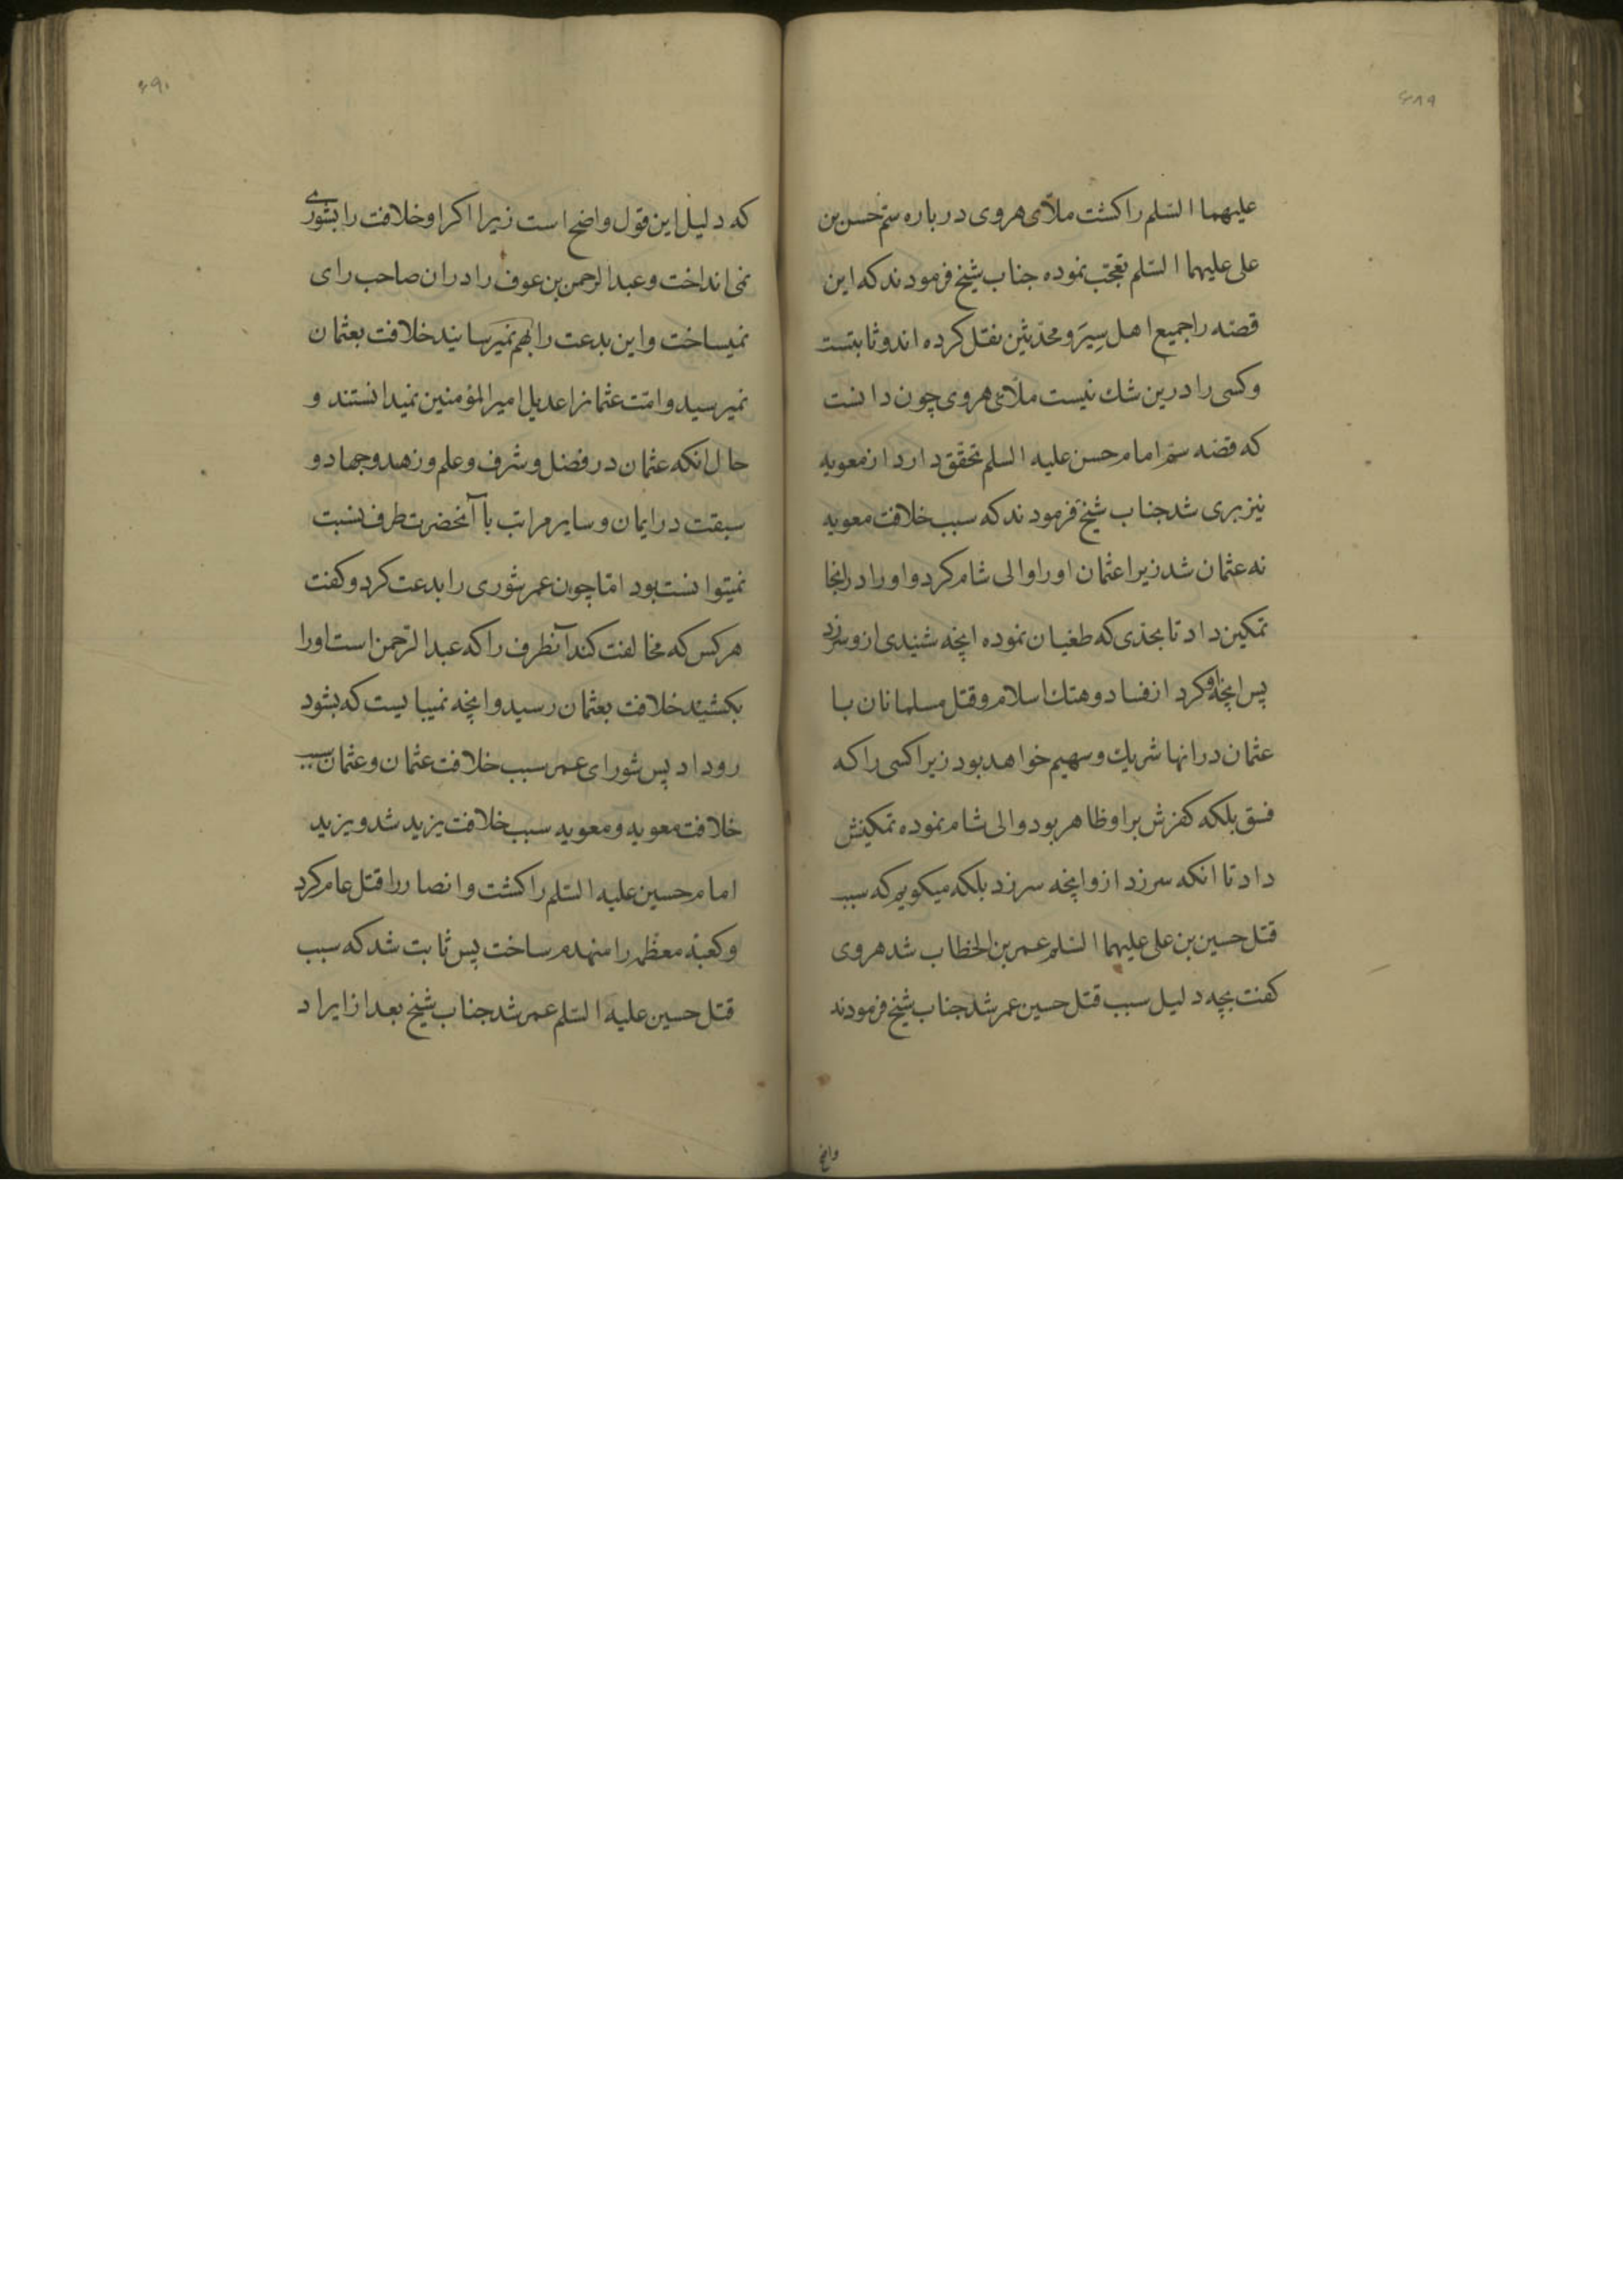 ۶۸۹
علیهما السّلم را کشت ملّای هروی در باره سمّ حسن بن
علی علیهما السّلم تعجّب نموده جناب شیخ فرمودند که این
قصّه را جمیع اهل سِیَر و محدّثین نقل کرده اند و ثابتست
و کسی را درین شك نیست ملّای هروی چون دانست
که قصّه سمّ امام حسن علیه السلم تحقّق دارد از معویه
نیز بری شد جناب شیخ فرمودند که سبب خلافت معویه
نه عثمان شد زیرا عثمان او را والی شام کرد و او را در انجا
تمکین داد تا بحدّی که طغیان نموده انچه شنیدی ازو سرزد
پس انچه او کرد از فساد و هتك اسلام و قتل مسلمانان با
عثمان در انها شریك و سهیم خواهد بود زیرا کسی را که
فسق بلکه کفرش بر او ظاهر بود والی شام نموده تمکینش
داد تا انکه سرزد ازو انچه سرزد بلکه میکویم که سبب
قتل حسین بن علی علیهما السّلم عمر بن الخطّاب شد هروی
کفت بچه دلیل سبب قتل حسین عمر شد جناب شیخ فرمودند
۶۹۰
که دلیل این قول واضح است زیرا اکر او خلافت را بشوری
نمی انداخت و عبدالرحمن بن عوف را دران صاحب رای
نمیساخت و این بدعت را بهم نمیرسانید خلافت بعثمان
نمیرسید و امّت عثمانرا عدیل امیرالمؤمنین نمیدانستند و
حال انکه عثمان در فضل و شرف و علم و زهد و جهاد و
سبقت در ایمان و سایر مراتب با آنحضرت طرف نسبت
نمیتوانست بود امّا چون عمر شوری را بدعت کرد و کفت
هر کس که مخالفت کند آنطرف را که عبدالرّحمن است او را
بکشید خلافت بعثمان رسید و انچه نمیبایست که بشود
روداد پس شورای عمر سبب خلافت عثمان و عثمان سبب
خلافت معویه و معویه سبب خلافت یزید شد و یزید
امام حسین علیه السّلم را کشت و انصار را قتل عام کرد
و کعبهٔ معظّمه را منهدم ساخت پس ثابت شد که سبب
قتل حسین علیه السّلم عمر شد جناب شیخ بعد از ایراد